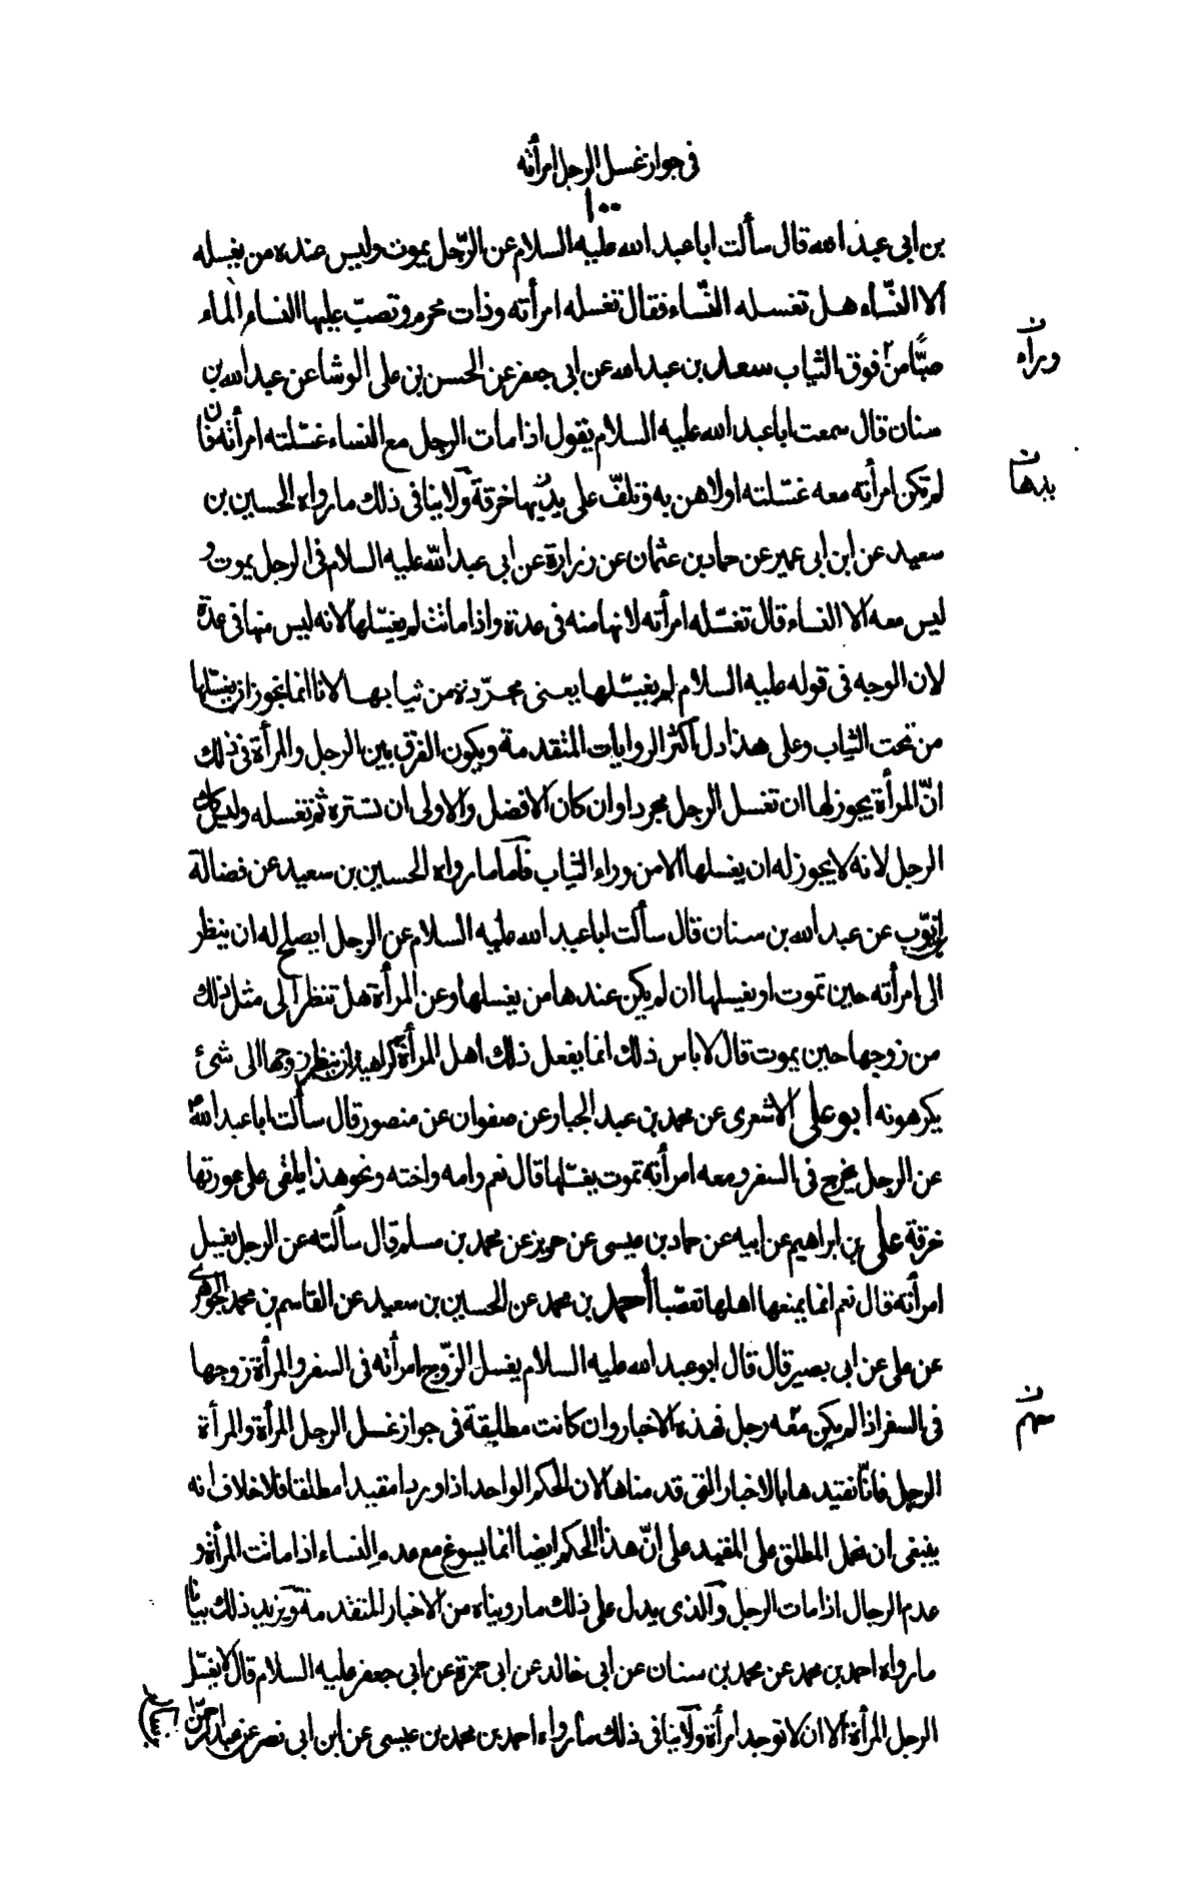 في جواز غسل الرجل امرأته
١٠٠
بن ابي عبد الله قال سألت ابا عبد الله عليه السلام عن الرّجل يموت وليس عنده من يغسله
الا النّساء هل تغسله النّساء فقال تغسله امرأته وذات محرم وتصبّ عليها النساء الماء
صبًّا من فوق الثياب سعد بن عبد الله عن ابي جعفر عن الحسن بن علي الوشا عن عبد الله بن
سنان قال سمعت ابا عبد الله عليه السلام يقول اذا مات الرجل مع النساء غسّلته امرأته فان
لم تكن امرأته معه غسّلته اولاهن به وتلفّ على يديها خرقة ولا ينافي ذلك ما رواه الحسين بن
سعيد عن ابن ابي عمير عن حماد بن عثمان عن زرارة عن ابي عبد الله عليه السلام في الرجل يموت و
ليس معه الا النساء قال تغسّله امرأته لانها منه في عدة واذا ماتت لم يغسّلها لانه ليس منها في عدة
لان الوجه في قوله عليه السلام لم يغسّلها يعني مجرّدة من ثيابها لانا انما نجوز ان يغسّلها
من تحت الثياب وعلى هذا دل اكثر الروايات المتقدمة ويكون الفرق بين الرجل والمرأة في ذلك
انّ المرأة يجوز لها ان تغسل الرجل مجردا وان كان الافضل والاولى ان تستره ثم تغسله وليس كذلك
الرجل لانه لا يجوز له ان يغسلها الا من وراء الثياب فاما ما رواه الحسين بن سعيد عن فضالة
بن ايّوب عن عبد الله بن سنان قال سألت ابا عبد الله عليه السلام عن الرجل ايصلح له ان ينظر
الى امرأته حين تموت او يغسلها ان لم يكن عندها من يغسلها وعن المرأة هل تنظر الى مثل ذلك
من زوجها حين يموت قال لا باس ذلك انما يفعل ذلك اهل المرأة كراهية ان ينظر زوجها الى شئ
يكرهونه ابو علي الاشعري عن محمد بن عبد الجبار عن صفوان عن منصور قال سألت ابا عبد الله
عن الرجل يخرج في السفر ومعه امرأته تموت يغسّلها قال نعم وامه واخته ونحو هذا يلقى على عورتها
خرقة علي بن ابراهيم عن ابيه عن حماد بن عيسى عن حريز عن محمد بن مسلم قال سألته عن الرجل يغسل
امرأته قال نعم انما يمنعها اهلها تعصّبا احمد بن محمد عن الحسين بن سعيد عن القاسم بن محمد الجوهري
عن علي عن ابي بصير قال قال ابو عبد الله عليه السلام يغسل الزّوج امرأته في السفر والمرأة زوجها
في السفر اذا لم يكن معه رجل فهذه الاخبار وان كانت مطلقة في جواز غسل الرجل المرأة والمرأة
الرجل فانّا نقيدها بالاخبار التي قدمناها لان الحكم الواحد اذا ورد مقيدا مطلقا فلا خلاف انه
ينبغي ان نحمل المطلق على المقيد على انّ هذا الحكم ايضا انما يسوغ مع عدم النساء اذا ماتت المرأة و
عدم الرجال اذا مات الرجل والذي يدل على ذلك ما رويناه من الاخبار المتقدمة ويزيد ذلك بيانا
ما رواه احمد بن محمد عن محمد بن سنان عن ابي خالد عن ابي حمزة عن ابي جعفر عليه السلام قال لا يغسّل
الرجل المرأة الا ان لا توجد امرأة ولا ينافي ذلك ما رواه احمد بن محمد بن عيسى عن ابن ابي نصر عن عبد الرحمن
وراء ن
يدها ن
معهم ن